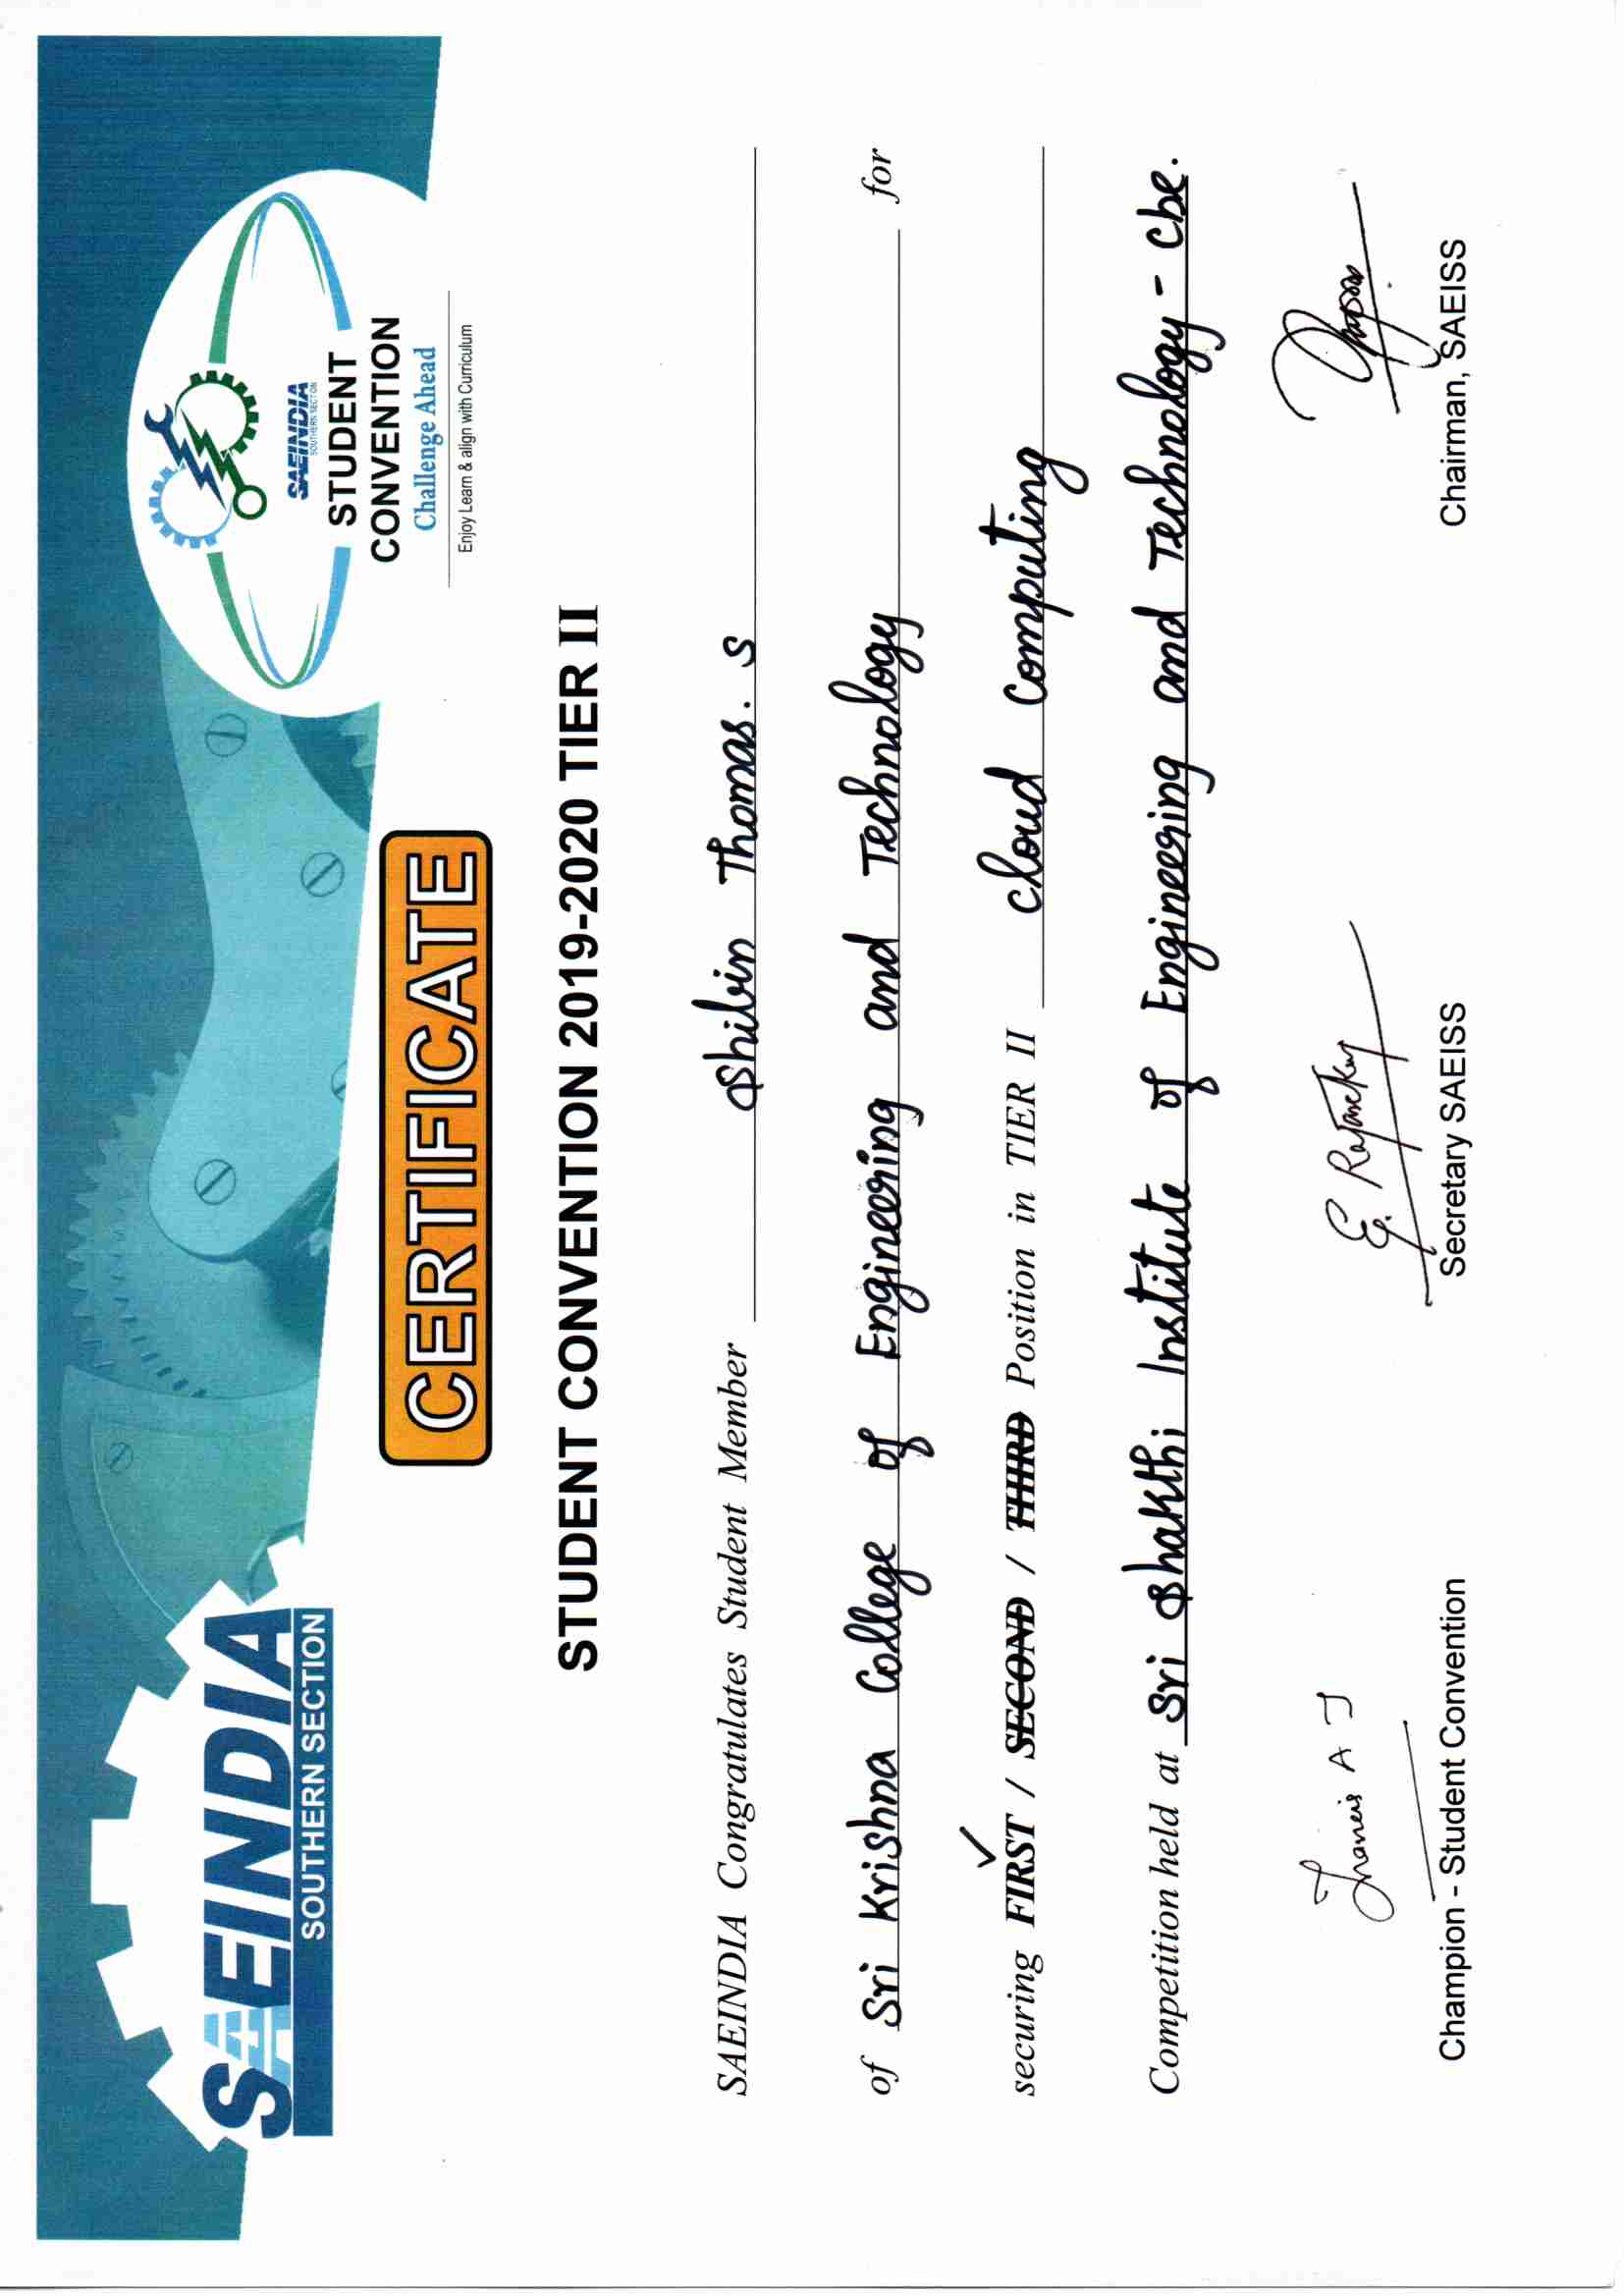 SAEINDIA
SOUTHERN SECTION
SAEINDIA
SOUTHERN SECTION
STUDENT
CONVENTION
Challenge Ahead
Enjoy Learn & align with Curriculum
CERTIFICATE
STUDENT CONVENTION 2019-2020 TIER II
SAEINDIA Congratulates Student Member Shibin Thomas. S
of Sri Krishna College of Engineering and Technology for
securing FIRST / SECOND / THIRD Position in TIER II cloud computing
Competition held at Sri Shakthi Institute of Engineering and Technology - Cbe.
Francis A J
E. Rajasekar
Champion - Student Convention
Secretary SAEISS
Chairman, SAEISS